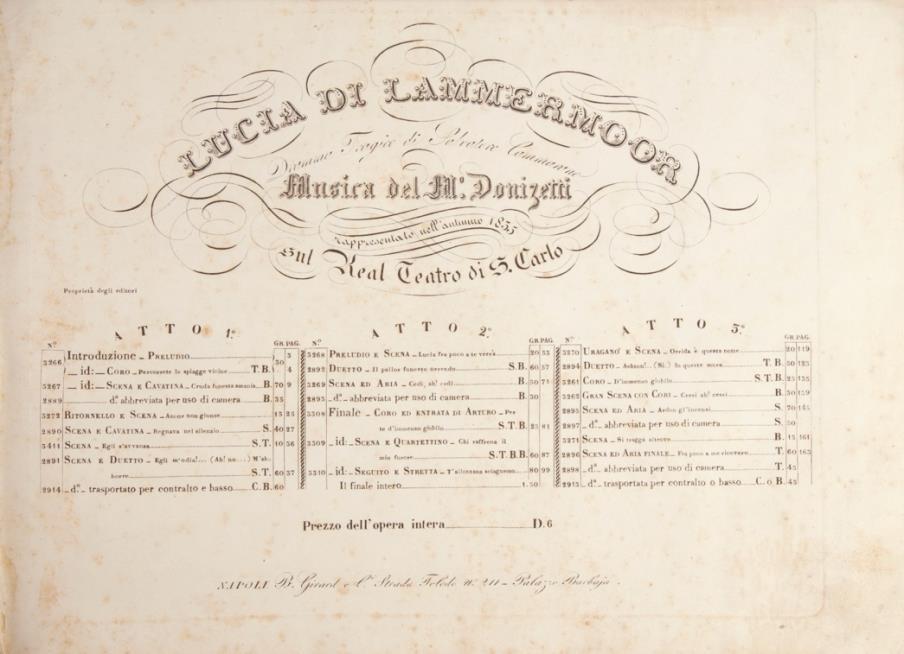 LUCIA DI LAMMERMOOR
Dramma Tragico di Salvatore Cammarano
Musica del M.º Donizetti
rappresentato nell'autunno 1835
sul Real Teatro di S. Carlo
Proprietà degli editori
ATTO 1.º
N.º GR. PAG.
3266 Introduzione _ PRELUDIO 3
_ id: _ CORO _ Percorrete le spiagge vicine T. B. 50 4
3267 _ id: _ SCENA E CAVATINA _ Cruda funesta smania B. 70 9
2889 d.º abbreviata per uso di camera B. 35
3272 RITORNELLO E SCENA _ Ancor non giunse 15 25
2890 SCENA E CAVATINA _ Regnava nel silenzio S. 40 27
3411 SCENA _ Egli s'avvanza S. T. 10 36
2891 SCENA E DUETTO _ Egli m'odia!... (Ah! no....) M'ab-
borre S. T. 60 37
2914 _ d.º _ trasportato per contralto e basso C. B. 60
ATTO 2.º
N.º GR. PAG.
3268 PRELUDIO E SCENA _ Lucia fra poco a te verrà 20 53
2892 DUETTO _ Il pallor funesto orrendo S. B. 60 57
3269 SCENA ED ARIA _ Cedi, ah! cedi B. 50 71
2893 _ d.º _ abbreviata per uso di camera B. 30
3308 Finale _ CORO ED ENTRATA DI ARTURO _ Per
te d'immenso giubilo S. T. B. 25 81
3309 _ id: _ SCENA E QUARTETTINO _ Chi raffrena il
mio furore S. T. B. B. 60 87
3310 _ id: _ SEGUITO E STRETTA _ T'allontana sciagurato 80 99
Il finale intero 1.50
ATTO 3.º
N.º GR. PAG.
3270 URAGANO E SCENA _ Orrida è questa notte 20 119
2894 DUETTO _ Ashton!.. (Sì:) In queste mura T. B. 50 123
3261 CORO _ D'immenso giubilo S. T. B. 25 135
3262 GRAN SCENA CON CORI _ Cessi ah! cessi B. 50 139
2895 SCENA ED ARIA _ Ardon gl'incensi S. 70 145
2897 _ d.º _ abbreviata per uso di camera S. 50
3271 SCENA _ Si tragga altrove B. 15 161
2896 SCENA ED ARIA FINALE _ Fra poco a me ricovero T. 60 163
2898 _ d.º _ abbreviata per uso di camera T. 45
2915 _ d.º _ trasportata per contralto o basso C. o B. 45
Prezzo dell'opera intera D. 6
NAPOLI B. Girard e C.º Strada Toledo n.º 211 _ Palazzo Barbaja.